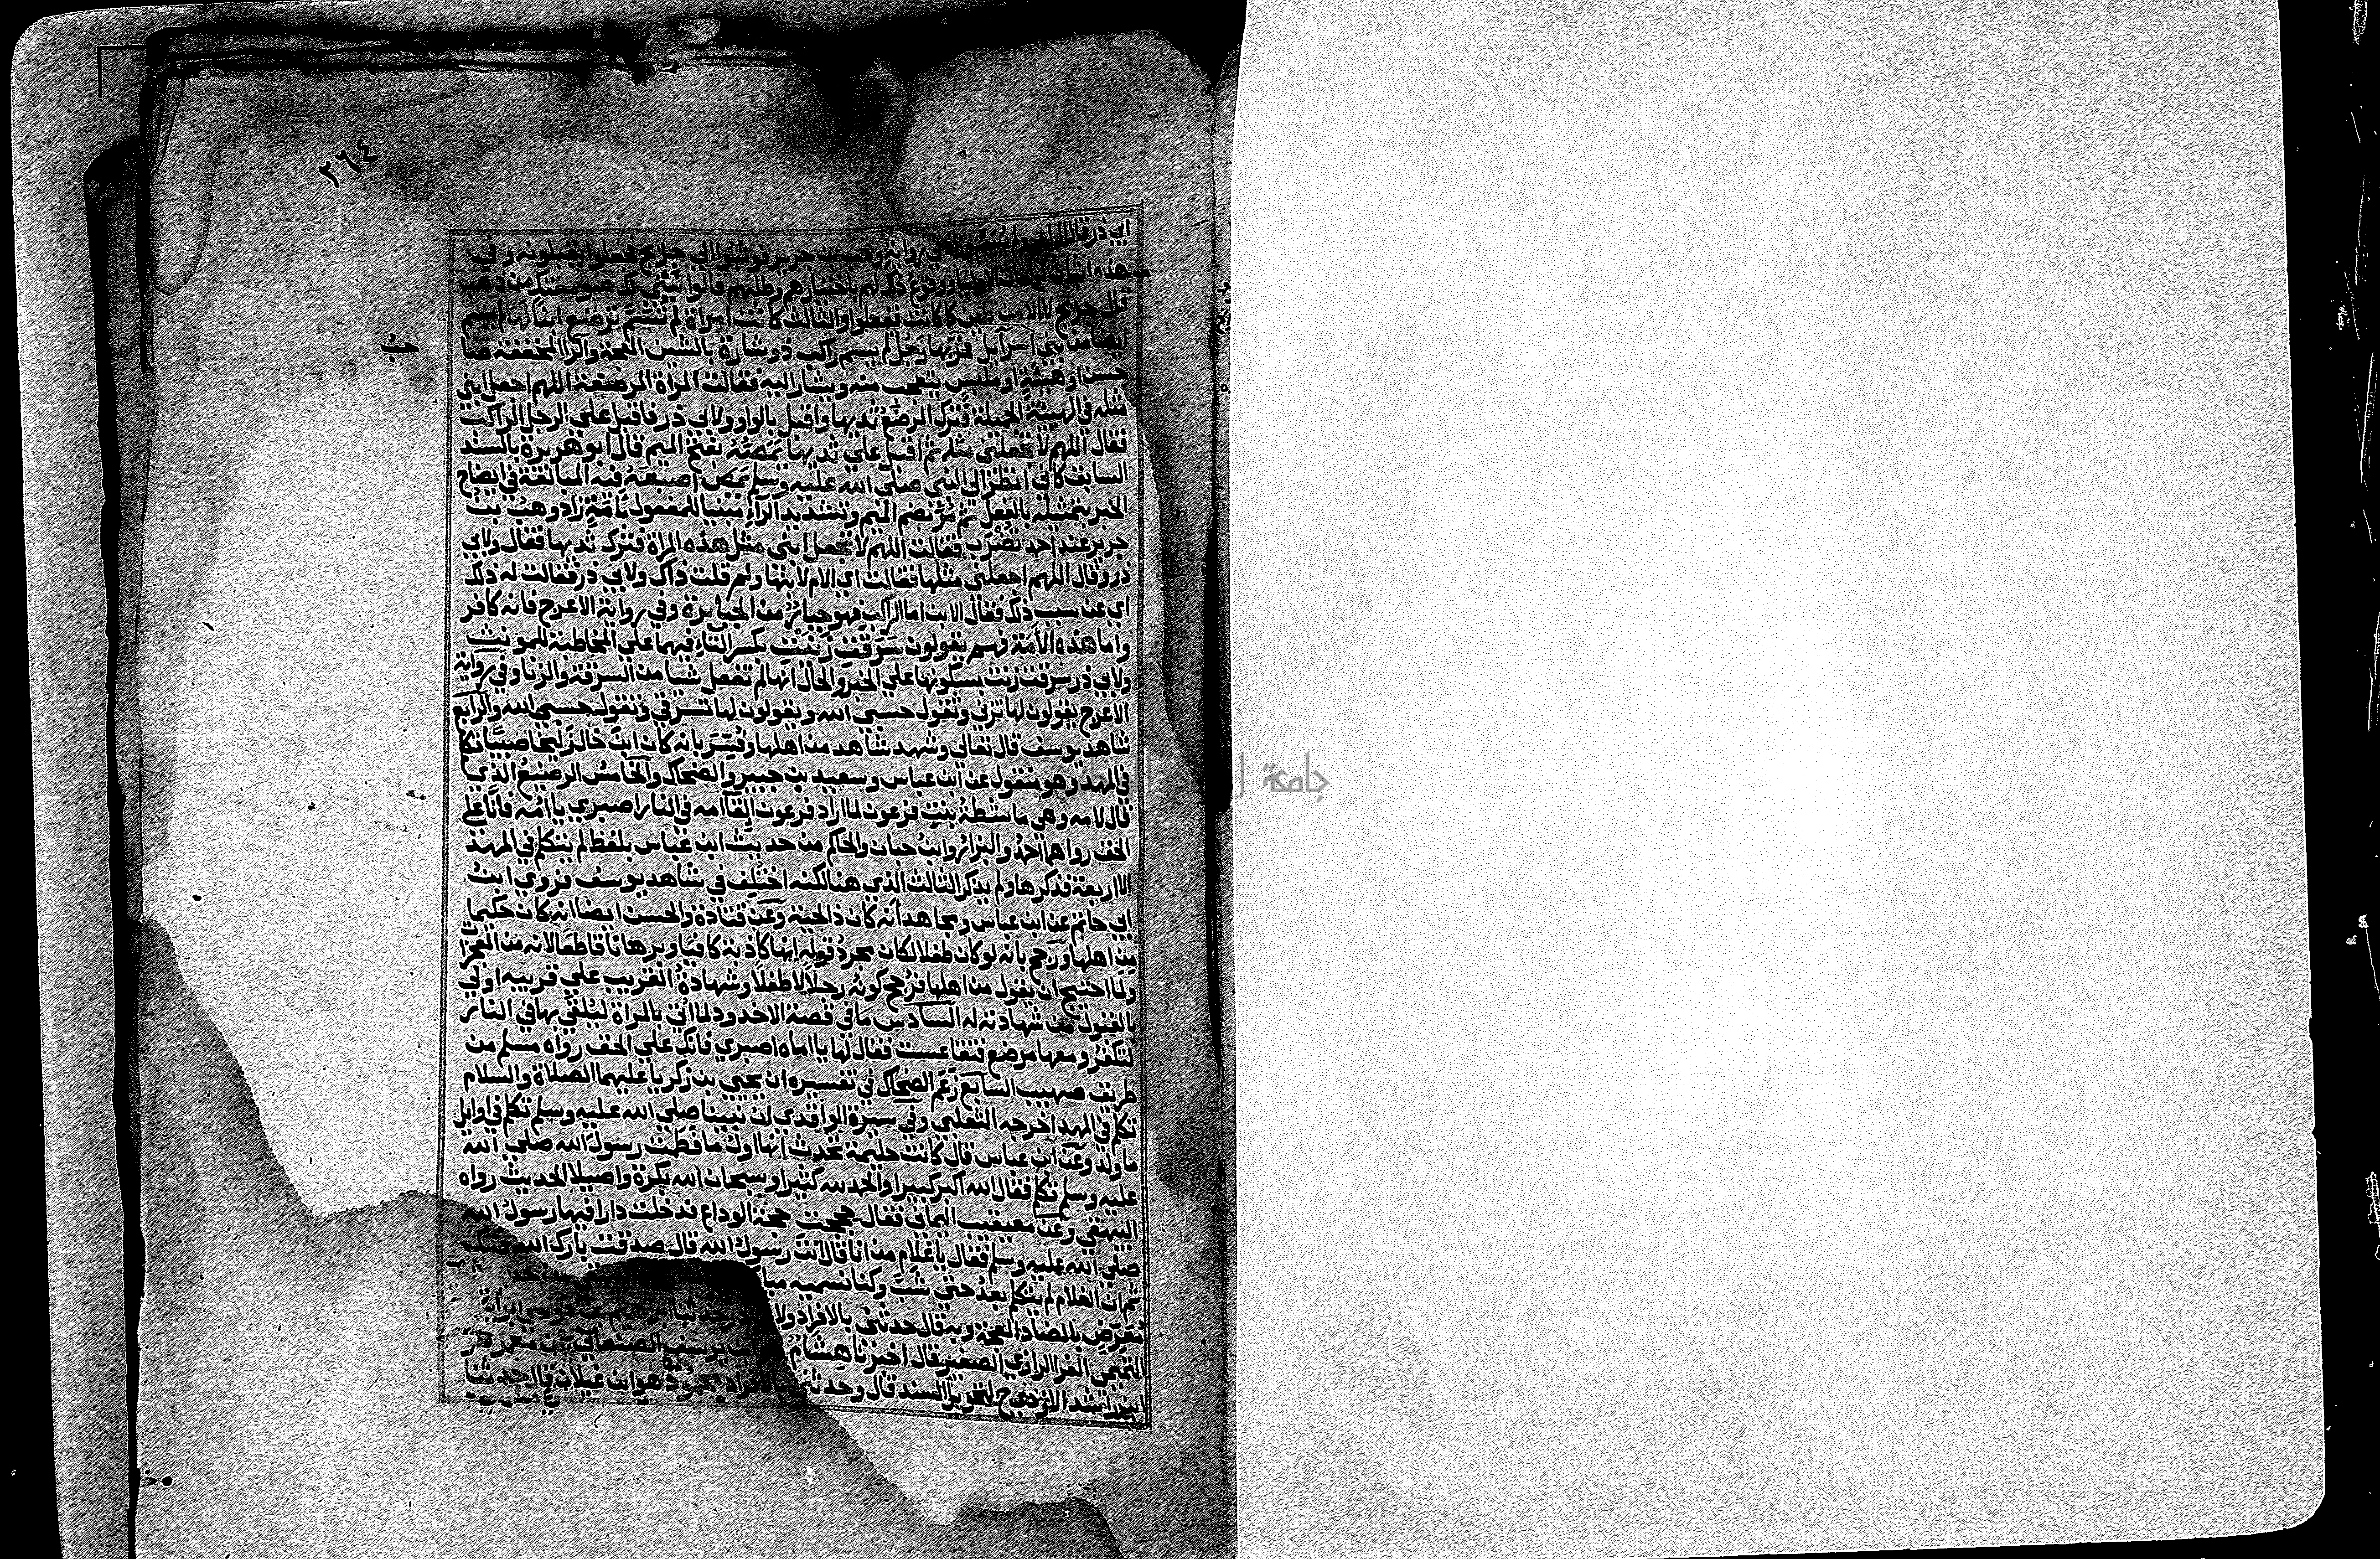 ٢٦٤
ابي ذر قال الراعي ولم يسم وله في رواية وهب بن جرير فوثبوا الي جريج فجعلوا يقبلونه وفي
هذه اثبات كرامات الاوليا ووقوع ذلك لهم باختيارهم وطلبهم قالوا نبني لك صومعتك من ذهب
قال جريج لا الا من طين كما كانت ففعلوا والثالث كانت امراة لم تسم ترضع ابنا لها لم يسم
ايضا من بني اسرآيل فمر بها رجل لم يسم راكب ذو شارة بالشين المعجمة والرا المخففة صا
حب
حسن او هيئة او ملبس يتعجب منه ويشار اليه فقالت المراة المرضعة اللهم اجعل ابني
مثله في الهيئة الجميلة فترك المرضع ثديها واقبل بالواو ولابي ذر فاقبل علي الرجل الراكب
فقال اللهم لا تجعلني مثله ثم اقبل علي ثديها يمصه بفتح الميم قال ابو هريرة بالسند
السابق كاني انظر الي النبي صلي الله عليه وسلم يمص اصبعه فيه المبالغة في ايضاح
الخبر بتمثيله بالفعل ثم مر بضم الميم وتشديد الراء مبنيا للمفعول بامة زاد وهب بن
جرير عند احمد تضرب فقالت اللهم لا تجعل ابني مثل هذه المراة فترك ثديها فقال ولابي
ذر وقال اللهم اجعلني مثلها فقالت اي الام لابنها ولم قلت ذاك ولابي ذر فقالت له ذلك
اي عن سبب ذلك فقال الابن اما الراكب فهو جبار من الجبابرة وفي رواية الاعرج فانه كافر
واما هذه الامة فهم يقولون سرقت زنيت بكسر التاء فيهما علي المخاطبة للمونث
ولابي ذر سرقت زنت بسكونها علي الخبر والحال انها لم تفعل شيا من السرقة والزنا وفي رواية
الاعرج يقولون لها تزني وتقول حسبي الله ويقولون لها تسرقي وتقول حسبي الله والرابع
شاهد يوسف قال تعالي وشهد شاهد من اهلها وفسر بانه كان ابن خال زليخا صبيا تكلم
في المهد وهو منقول عن ابن عباس وسعيد بن جبير والضحاك والخامس الرضيع الذي
قال لامه وهي ماشطة بنت فرعون لما اراد فرعون القا امه في النار اصبري يا امه فانا علي
الحق رواهما احمد والبزار وابن حبان والحاكم من حديث ابن عباس بلفظ لم يتكلم في المهد
الا اربعة فذكرها ولم يذكر الثالث الذي هنا لكنه اختلف في شاهد يوسف فروي ابن
ابي حاتم عن ابن عباس ومجاهد انه كان ذا لحية وعن قتادة والحسن ايضا انه كان حكيما
من اهلها ورجح بانه لو كان طفلا لكان مجرد قوله انها كاذبة كافيا وبرهانا قاطعا لانه من المعجزات
ولما احتيج ان يقول من اهلها فرجح كونه رجلا لا طفلا وشهادة القريب علي قريبه اولي
بالقبول من شهادته له السادس ما في قصة الاخدود لما اتي بالمراة ليلقي بها في النار
لتكفر ومعها مرضع فتقاعست فقال لها يا اماه اصبري فانك علي الحق رواه مسلم من
طريق صهيب السابع زعم الضحاك في تفسيره ان يحيي بن زكريا عليهما الصلاة والسلام
تكلم في المهد اخرجه الثعلبي وفي سيرة الواقدي ان نبينا صلي الله عليه وسلم تكلم في اوايل
ما ولد وعن ابن عباس قال كانت حليمة تحدث انها اول ما فطمت رسول الله صلي الله
عليه وسلم تكلم فقال الله اكبر كبيرا والحمد لله كثيرا وسبحان الله بكرة واصيلا الحديث رواه
البيهقي وعن معيقيب اليماني فقال حججت حجة الوداع فدخلت دارا فيها رسول الله
صلي الله عليه وسلم فقال يا غلام من انا قال انت رسول الله قال صدقت بارك الله فيك
ثم ان الغلام لم يتكلم بعد حتي شب وكنا نسميه مبا
معرض بالضاد المعجمة وبه قال حدثني بالافراد ولا ذر حدثنا ابرهيم بن موسي ابن
التميمي الفرا الرازي الصغير قال اخبرنا هشام ابن يوسف الصنعاني عن معمر هو
ابن راشد الازدي ح لتحويل السند قال وحدثني بالافراد محمود هو ابن غيلان قال حدثنا
جامعة